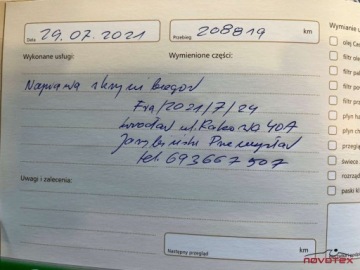 Data 29.07.2021 Przebieg 208819 km
Wykonane usługi: Wymienione części:
Naprawa skrzyni biegów
Fra/2021/7/24
Wrocław ul. Rakowa 40A
Przemysław
tel. 693667507
Uwagi i zalecenia:
Następny przegląd km
Wymiana
olej
filtr
filtr
filtr
płyn
płyn
świece
rozrząd
paski
novotex